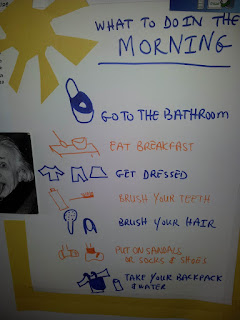 WHAT TO DO IN THE
MORNING
GO TO THE BATHROOM
EAT BREAKFAST
GET DRESSED
BRUSH YOUR TEETH
BRUSH YOUR HAIR
PUT ON SANDALS
OR SOCKS & SHOES
TAKE YOUR BACKPACK
& WATER